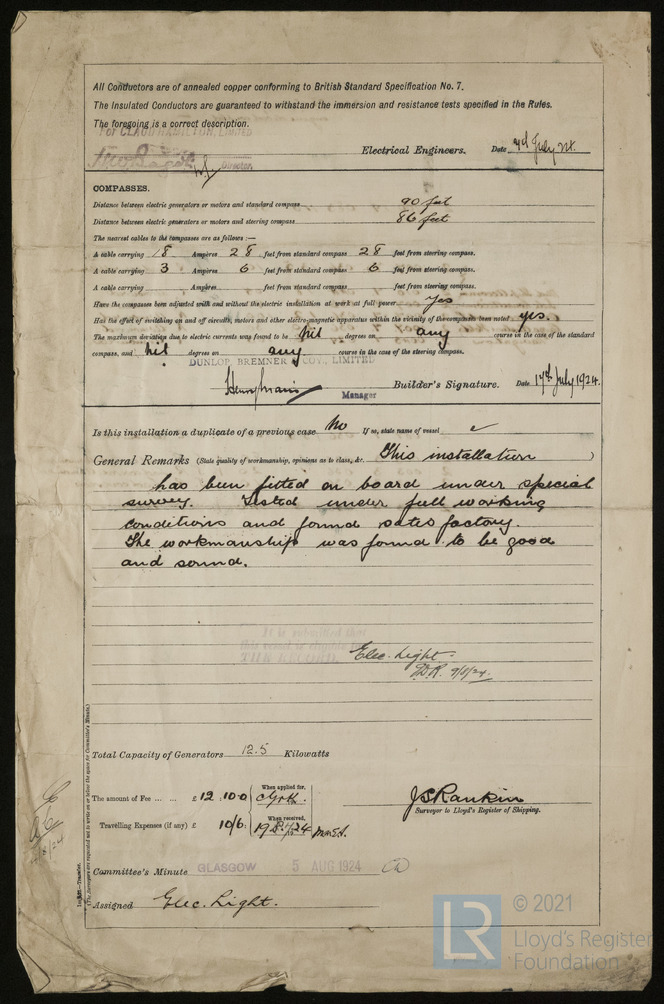 All Conductors are of annealed copper conforming to British Standard Specification No. 7.
The Insulated Conductors are guaranteed to withstand the immersion and resistance tests specified in the Rules.
The foregoing is a correct description.
For CLAUD HAMILTON, LIMITED
Director. Electrical Engineers. Date July 24.
COMPASSES.
Distance between electric generators or motors and standard compass 90 feet
Distance between electric generators or motors and steering compass 86 feet
The nearest cables to the compasses are as follows :—
A cable carrying 18 Ampères 28 feet from standard compass 28 feet from steering compass.
A cable carrying 3 Ampères 6 feet from standard compass 6 feet from steering compass.
A cable carrying Ampères feet from standard compass feet from steering compass.
Have the compasses been adjusted with and without the electric installation at work at full power yes
Has the effect of switching on and off circuits, motors and other electro-magnetic apparatus within the vicinity of the compasses been noted yes.
The maximum deviation due to electric currents was found to be Nil degrees on any course in the case of the standard
compass, and Nil degrees on any course in the case of the steering compass.
DUNLOP, BREMNER & COY., LIMITED
Manager Builder's Signature. Date 17th July 1924.
Is this installation a duplicate of a previous case No If so, state name of vessel
General Remarks (State quality of workmanship, opinions as to class, &c. This installation )
has been fitted on board under special
survey. Tested under full working
conditions and found satisfactory.
The workmanship was found to be good
and sound.
It is submitted that
this vessel is eligible for
THE RECORD
Elec. Light.
9/8/24.
Total Capacity of Generators 12.5 Kilowatts
The amount of Fee ... ... £ 12:10:0
When applied for,
Travelling Expenses (if any) £ 10/6:
When received,
JSRankin
Surveyor to Lloyd's Register of Shipping.
Committee's Minute GLASGOW 5 AUG 1924
Assigned Elec. Light.
(The Surveyors are requested not to write on or below the space for Committee's Minute.)
© 2021
LR
Lloyd's Register
Foundation